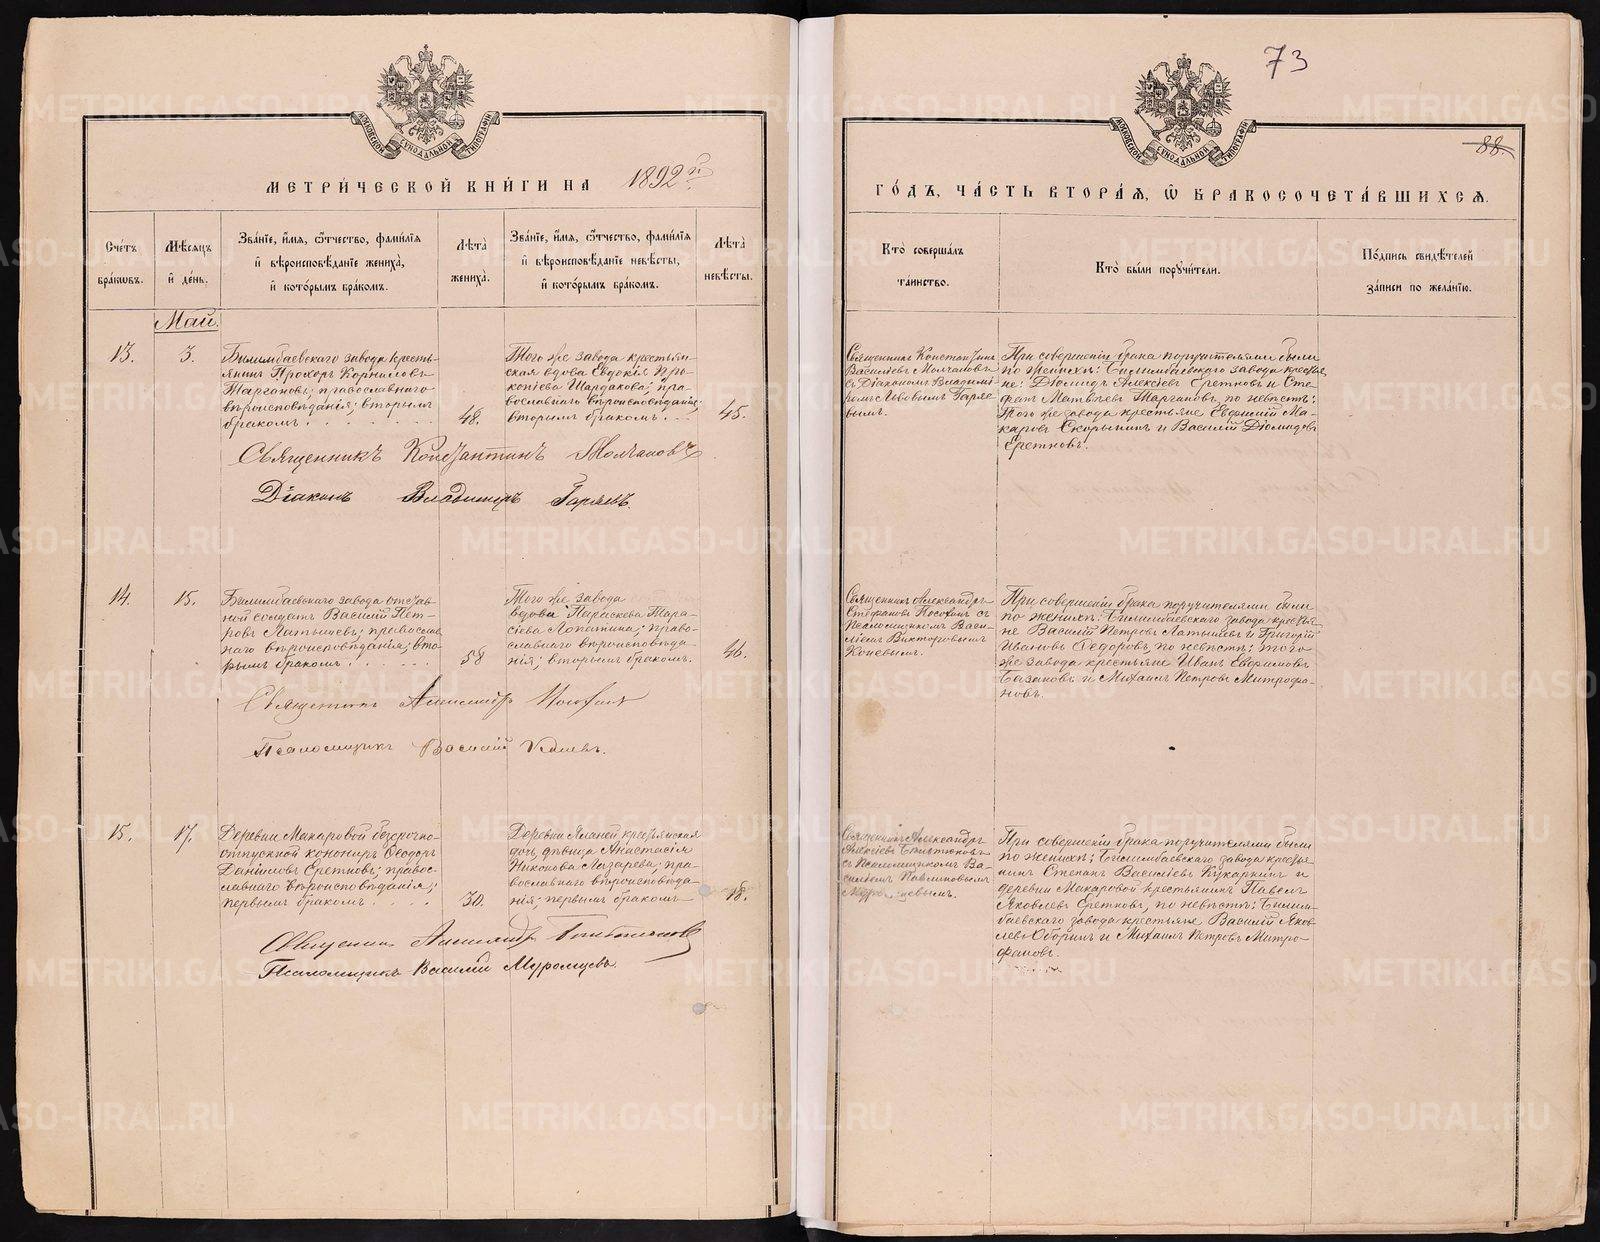 МЕТРИ́ЧЕСКОЙ КНИ́ГИ НА 1892й
Сче́тъ бра́ковъ.
Мѣ́сяцъ и҆ де́нь.
Зва́нїе, и҆́мя, ѻ҆́тчество, фами́лїя
и҆ вѣроисповѣ́данїе жениха̀,
и҆ кото́рымъ бра́комъ.
Лѣта̀ жениха̀.
Зва́нїе, и҆́мя, ѻ҆́тчество, фами́лїя
и҆ вѣроисповѣ́данїе невѣ́сты,
и҆ кото́рымъ бра́комъ.
Лѣта̀ невѣ́сты.
Май.
13.
3.
Билимбаевскаго завода кресть-
янинъ Прохоръ Корниловъ
Таргановъ, православнаго
вѣроисповѣданія; вторымъ
бракомъ
48.
Того же завода крестьян-
ская вдова Евдокія Про-
копіева Шардакова; пра-
вославнаго вѣроисповѣданія;
вторымъ бракомъ
45.
Священникъ Константинъ Молчановъ
Діаконъ Владиміръ Гаряевъ.
14.
15.
Билимбаевскаго завода отстав-
ной солдатъ Василій Пет-
ровъ Латышевъ; православ-
наго вѣроисповѣданія; вто-
рымъ бракомъ
58
Того же завода
вдова Параскева Тара-
сіева Лопатина; право-
славнаго вѣроисповѣда-
нія; вторымъ бракомъ.
46.
Священникъ Александръ
Псаломщикъ Василій Коневъ.
15.
17.
Деревни Макаровой безсрочно-
отпускной канониръ Ѳеодоръ
Даніиловъ Еретновъ; правос-
лавнаго вѣроисповѣданія;
первымъ бракомъ
30.
Деревни крестьянская
дочь, дѣвица Анастасія
Никонова Лазарева; пра-
вославнаго вѣроисповѣда-
нія; первымъ бракомъ
18.
Священникъ Александръ
Псаломщикъ Василій Муромцевъ.
73
88.
ГО́ДЪ, ЧА́СТЬ ВТОРА́Я, Ѡ҆ БРАКОСОЧЕТА́ВШИХСЯ.
Кто̀ соверша́лъ
та́инство.
Кто̀ бы́ли поручи́тели.
По́дпись свидѣ́телей
за́писи по жела́нїю.
Священникъ Константинъ
Васильевъ Молчановъ
съ Діакономъ Владимі-
ромъ Львовымъ Гаряе-
вымъ.
При совершеніи брака поручителями были
по женихѣ: Билимбаевскаго завода крестья-
не: Діомидъ Алексіевъ Еретновъ и Сте-
фанъ Матвѣевъ Таргановъ, по невѣстѣ:
Того же завода крестьяне Евдокимъ Ма-
каровъ Скорынинъ и Василій Діомидовъ
Еретновъ.
Священникъ Александръ
Стефановъ съ
Псаломщикомъ Васи-
ліемъ Викторовымъ
Коневымъ.
При совершеніи брака поручителями были
по женихѣ: Билимбаевскаго завода крестья-
не Василій Петровъ Латышевъ и Григорій
Ивановъ Ѳедоровъ, по невѣстѣ: того
же завода крестьяне Иванъ Евфимовъ
Базановъ и Михаилъ Петровъ Митрофа-
новъ.
Священникъ Александръ
Алексіевъ
съ Псаломщикомъ Ва-
силіемъ Павлиновымъ
При совершеніи брака поручителями были
по женихѣ: Билимбаевскаго завода крестья-
нинъ Степанъ Васильевъ Кукаркинъ и
деревни Макаровой крестьянинъ Павелъ
Яковлевъ Еретновъ, по невѣстѣ: Билим-
баевскаго завода крестьяне Василій Яков-
левъ Оборинъ и Михаилъ Петровъ Митро-
фановъ.
METRIKI.GASO-URAL.RU